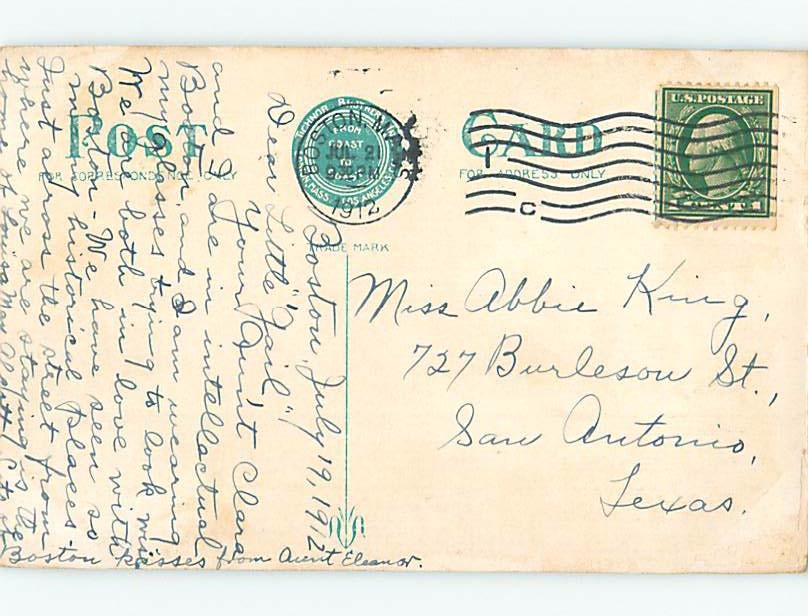 POST CARD
FOR CORRESPONDENCE ONLY
FOR ADDRESS ONLY
TICHNOR BROTHERS
FROM
COAST
TO
MASS. LOS ANGELES
TRADE MARK
BOSTON, MASS.
JUL 2
1912
C
U.S. POSTAGE
1 CENT 1
Boston, July 19, 1912
Dear Little "Tail",
Your Aunt Clara
and I are in intellectual
Boston and I am wearing
my glasses trying to look wise
We are both in love with
Boston - We have seen so
many historical places.
Just across the street from
where we are staying is the
home of Louisa May Alcott. Lots of
Boston kisses from Aunt Eleanor.
Miss Abbie King,
727 Burleson St.,
San Antonio,
Texas.